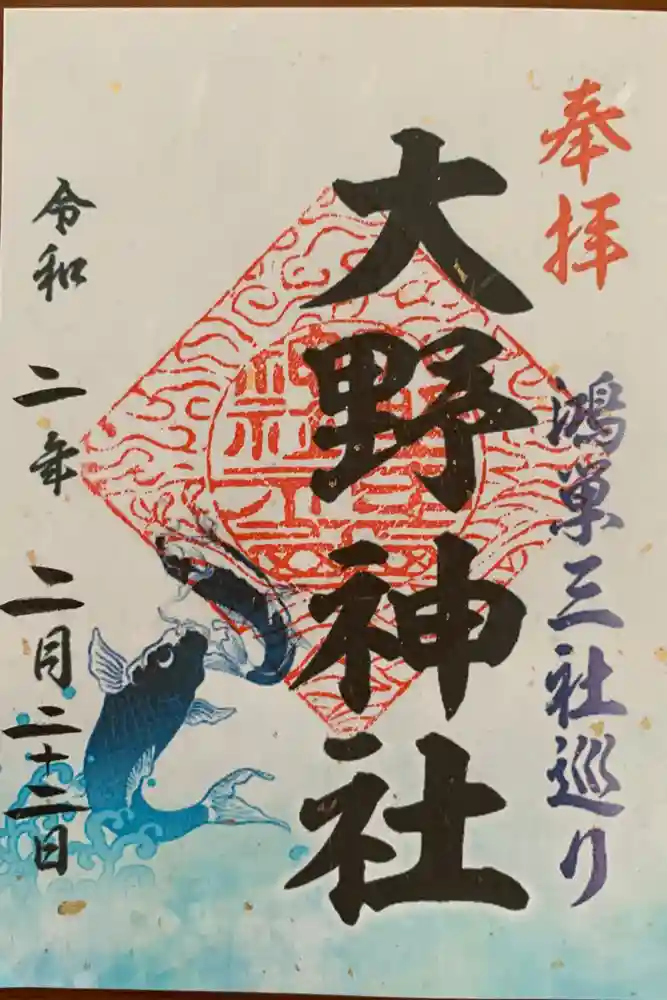 奉拝
鴻巣三社巡り
大野神社
令和二年二月二十二日